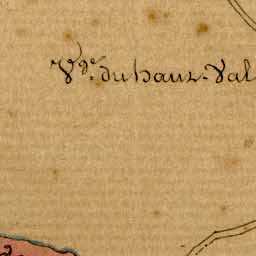 V.de du haut-Val